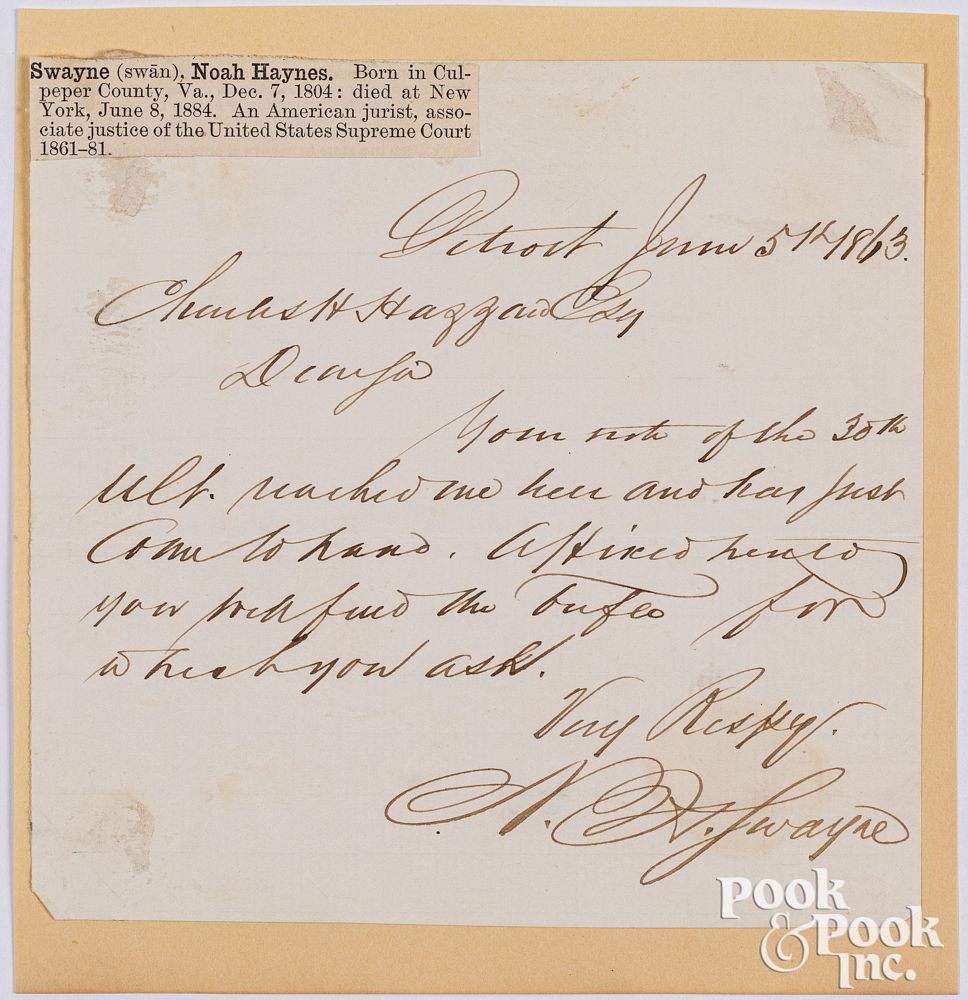 Swayne (swān), Noah Haynes. Born in Cul-
peper County, Va., Dec. 7, 1804: died at New
York, June 8, 1884. An American jurist, asso-
ciate justice of the United States Supreme Court
1861–81.
Detroit June 5th 1863.
Charles H Hazzard Esq
Dear Sir
Your note of the 30th
Ult. reached me here and has just
Come to hand. Affixed hereto
you will find the trifle for
which you ask.
Very Respy.
N. H. Swayne
POOK
& POOK
INC.